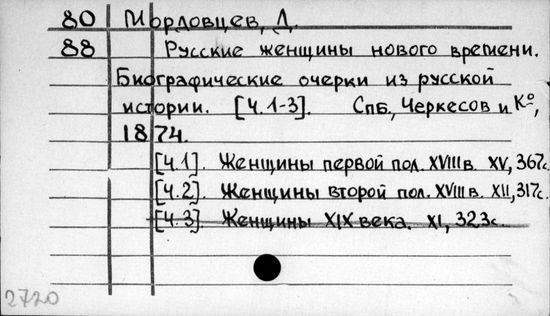 80 Мордовцев, Д.
88 Русские женщины нового времени.
Биографические очерки из русской
истории. [Ч.1-3]. Спб., Черкесов и Ко,
1874.
[Ч.1]. Женщины первой пол. XVIII в. XV, 367с.
[Ч.2]. Женщины второй пол. XVIII в. XII, 317с.
[Ч.3]. Женщины XIX века. XI, 323с.
2720